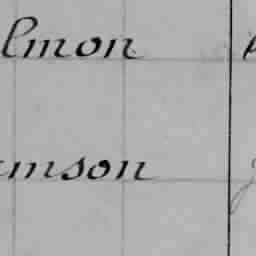 lmon
mson